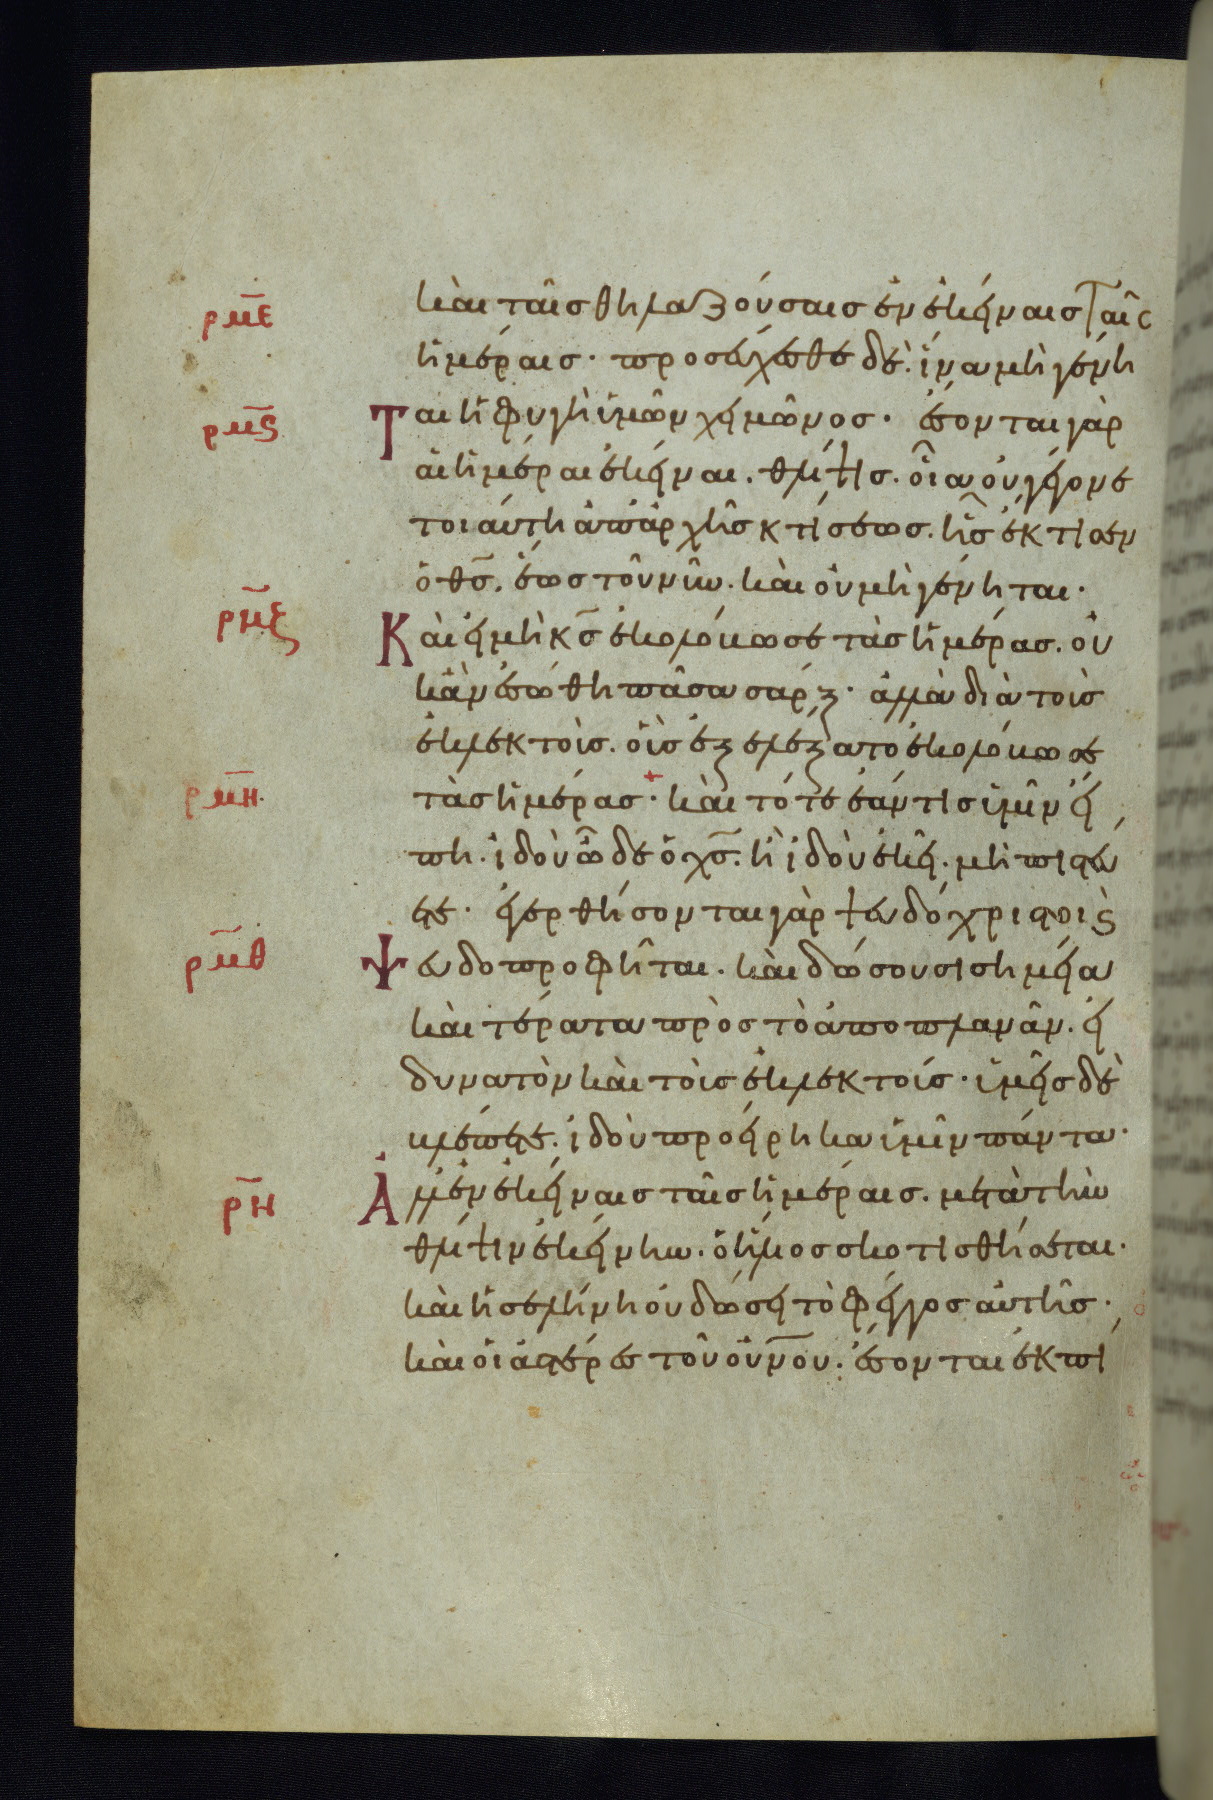 ρμε
καὶ ταῖς θηλαζούσαις ἐν ἐκείναις ταῖς
ἡμέραις· προσεύχεσθε δὲ· ἵνα μὴ γένη
ρμς
ται ἡ φυγὴ ὑμῶν χειμῶνος· ἔσονται γὰρ
αἱ ἡμέραι ἐκεῖναι. θλίψις. οἵα οὐ γέγονε
τοιαύτη ἀπ' ἀρχῆς κτίσεως. ἧς ἔκτισεν
ὁ θς. ἕως τοῦ νῦν. καὶ οὐ μὴ γένηται·
ρμξ
Καὶ εἰ μὴ κς ἐκολόβωσε τὰς ἡμέρας. οὐ
κἂν ἐσώθη πᾶσα σάρξ· ἀλλὰ διὰ τοὺς
ἐκλεκτοὺς. οὓς ἐξελέξατο ἐκολόβωσε
ρμη
τὰς ἡμέρας· καὶ τότε ἐάν τις ὑμῖν εἴ
πη. ἰδοὺ ὧδε ὁ χς. ἢ ἰδοὺ ἐκεῖ. μὴ πιστεύ
ετε· ἐγερθήσονται γὰρ ψευδόχριστοι ς
ρμθ
Ψευδοπροφῆται. καὶ δώσουσι σημεῖα
καὶ τέρατα πρὸς τὸ ἀποπλανᾶν. εἰ
δυνατὸν καὶ τοὺς ἐκλεκτούς· ὑμεῖς δὲ
βλέπετε. ἰδοὺ προείρηκα ὑμῖν πάντα·
ρν
Ἀλλ' ἐν ἐκείναις ταῖς ἡμέραις. μετὰ τὴν
θλίψιν ἐκείνην. ὁ ἥλιος σκοτισθήσεται·
καὶ ἡ σελήνη οὐ δώσει τὸ φέγγος αὐτῆς·
καὶ οἱ ἀστέρες τοῦ οὐνου. ἔσονται ἐκπί